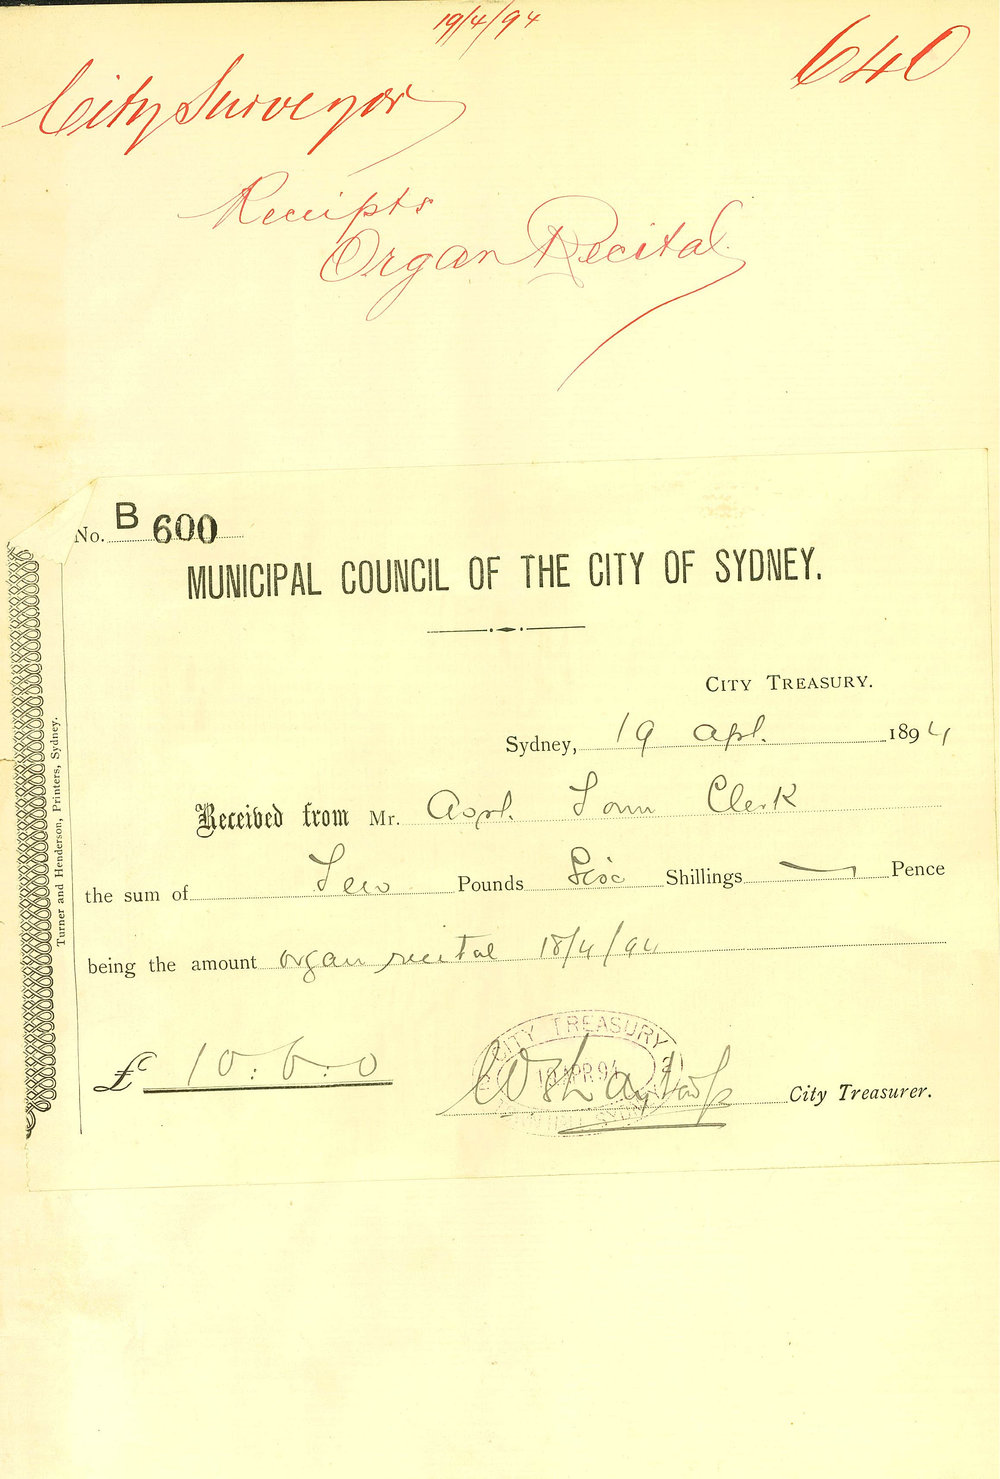 19/4/94
640
City Surveyor
Receipts
Organ Recital
No. B 600
MUNICIPAL COUNCIL OF THE CITY OF SYDNEY.
CITY TREASURY.
Sydney, 19 Apl. 1894
Received from Mr. Asst. Town Clerk
the sum of Ten Pounds Six Shillings — Pence
being the amount organ recital 18/4/94
£ 10:6:0
CITY TREASURY
19 APR 94
City Treasurer.
Turner and Henderson, Printers, Sydney.